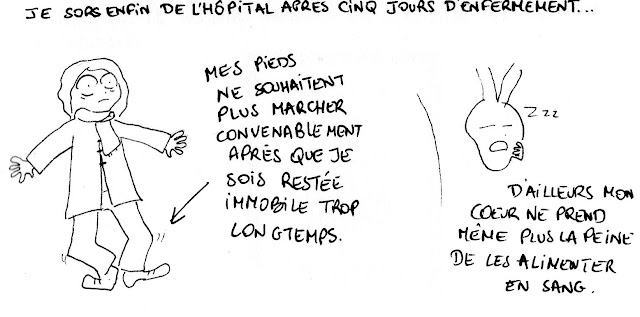 JE SORS ENFIN DE L'HÔPITAL APRES CINQ JOURS D'ENFERMEMENT...
MES PIEDS
NE SOUHAITENT
PLUS MARCHER
CONVENABLEMENT
APRÈS QUE JE
SOIS RESTÉE
IMMOBILE TROP
LONGTEMPS.
Zzz
D'AILLEURS MON
COEUR NE PREND
MÊME PLUS LA PEINE
DE LES ALIMENTER
EN SANG.